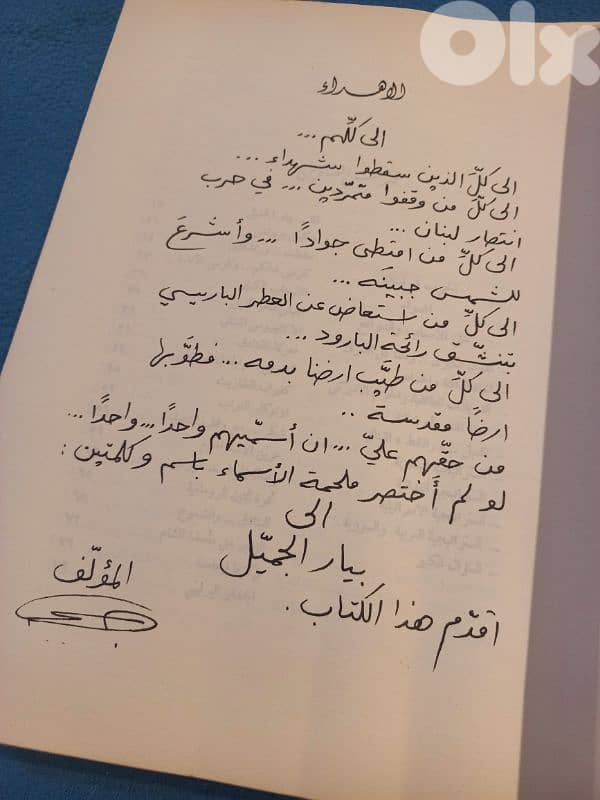 olx
الاهداء
الى كلِّهم...
الى كلَّ الذين سقطوا شهداء...
الى كلَّ من وقفوا متمرّدين... في حرب
انتصار لبنان...
الى كلِّ من امتطى جوادًا ... وأشرعَ
للشمس جبينَه...
الى كلِّ من استعاض عن العطر الباريسي
بتنشّق رائحة البارود...
الى كلَّ من طيّب ارضا بدمه... فطوَّبها
ارضًا مقدسة ..
من حقّهم عليّ... ان أسمّيهم واحدًا... واحدًا...
لو لم أختصر ملحمة الأسماء باسم وكلمتين :
الى
بيار الجميّل
اقدّم هذا الكتاب .
المؤلّف